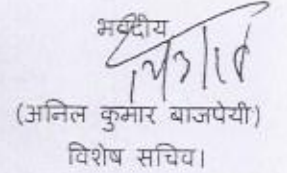 भवदीय
(अनिल कुमार बाजपेयी)
विशेष सचिव।